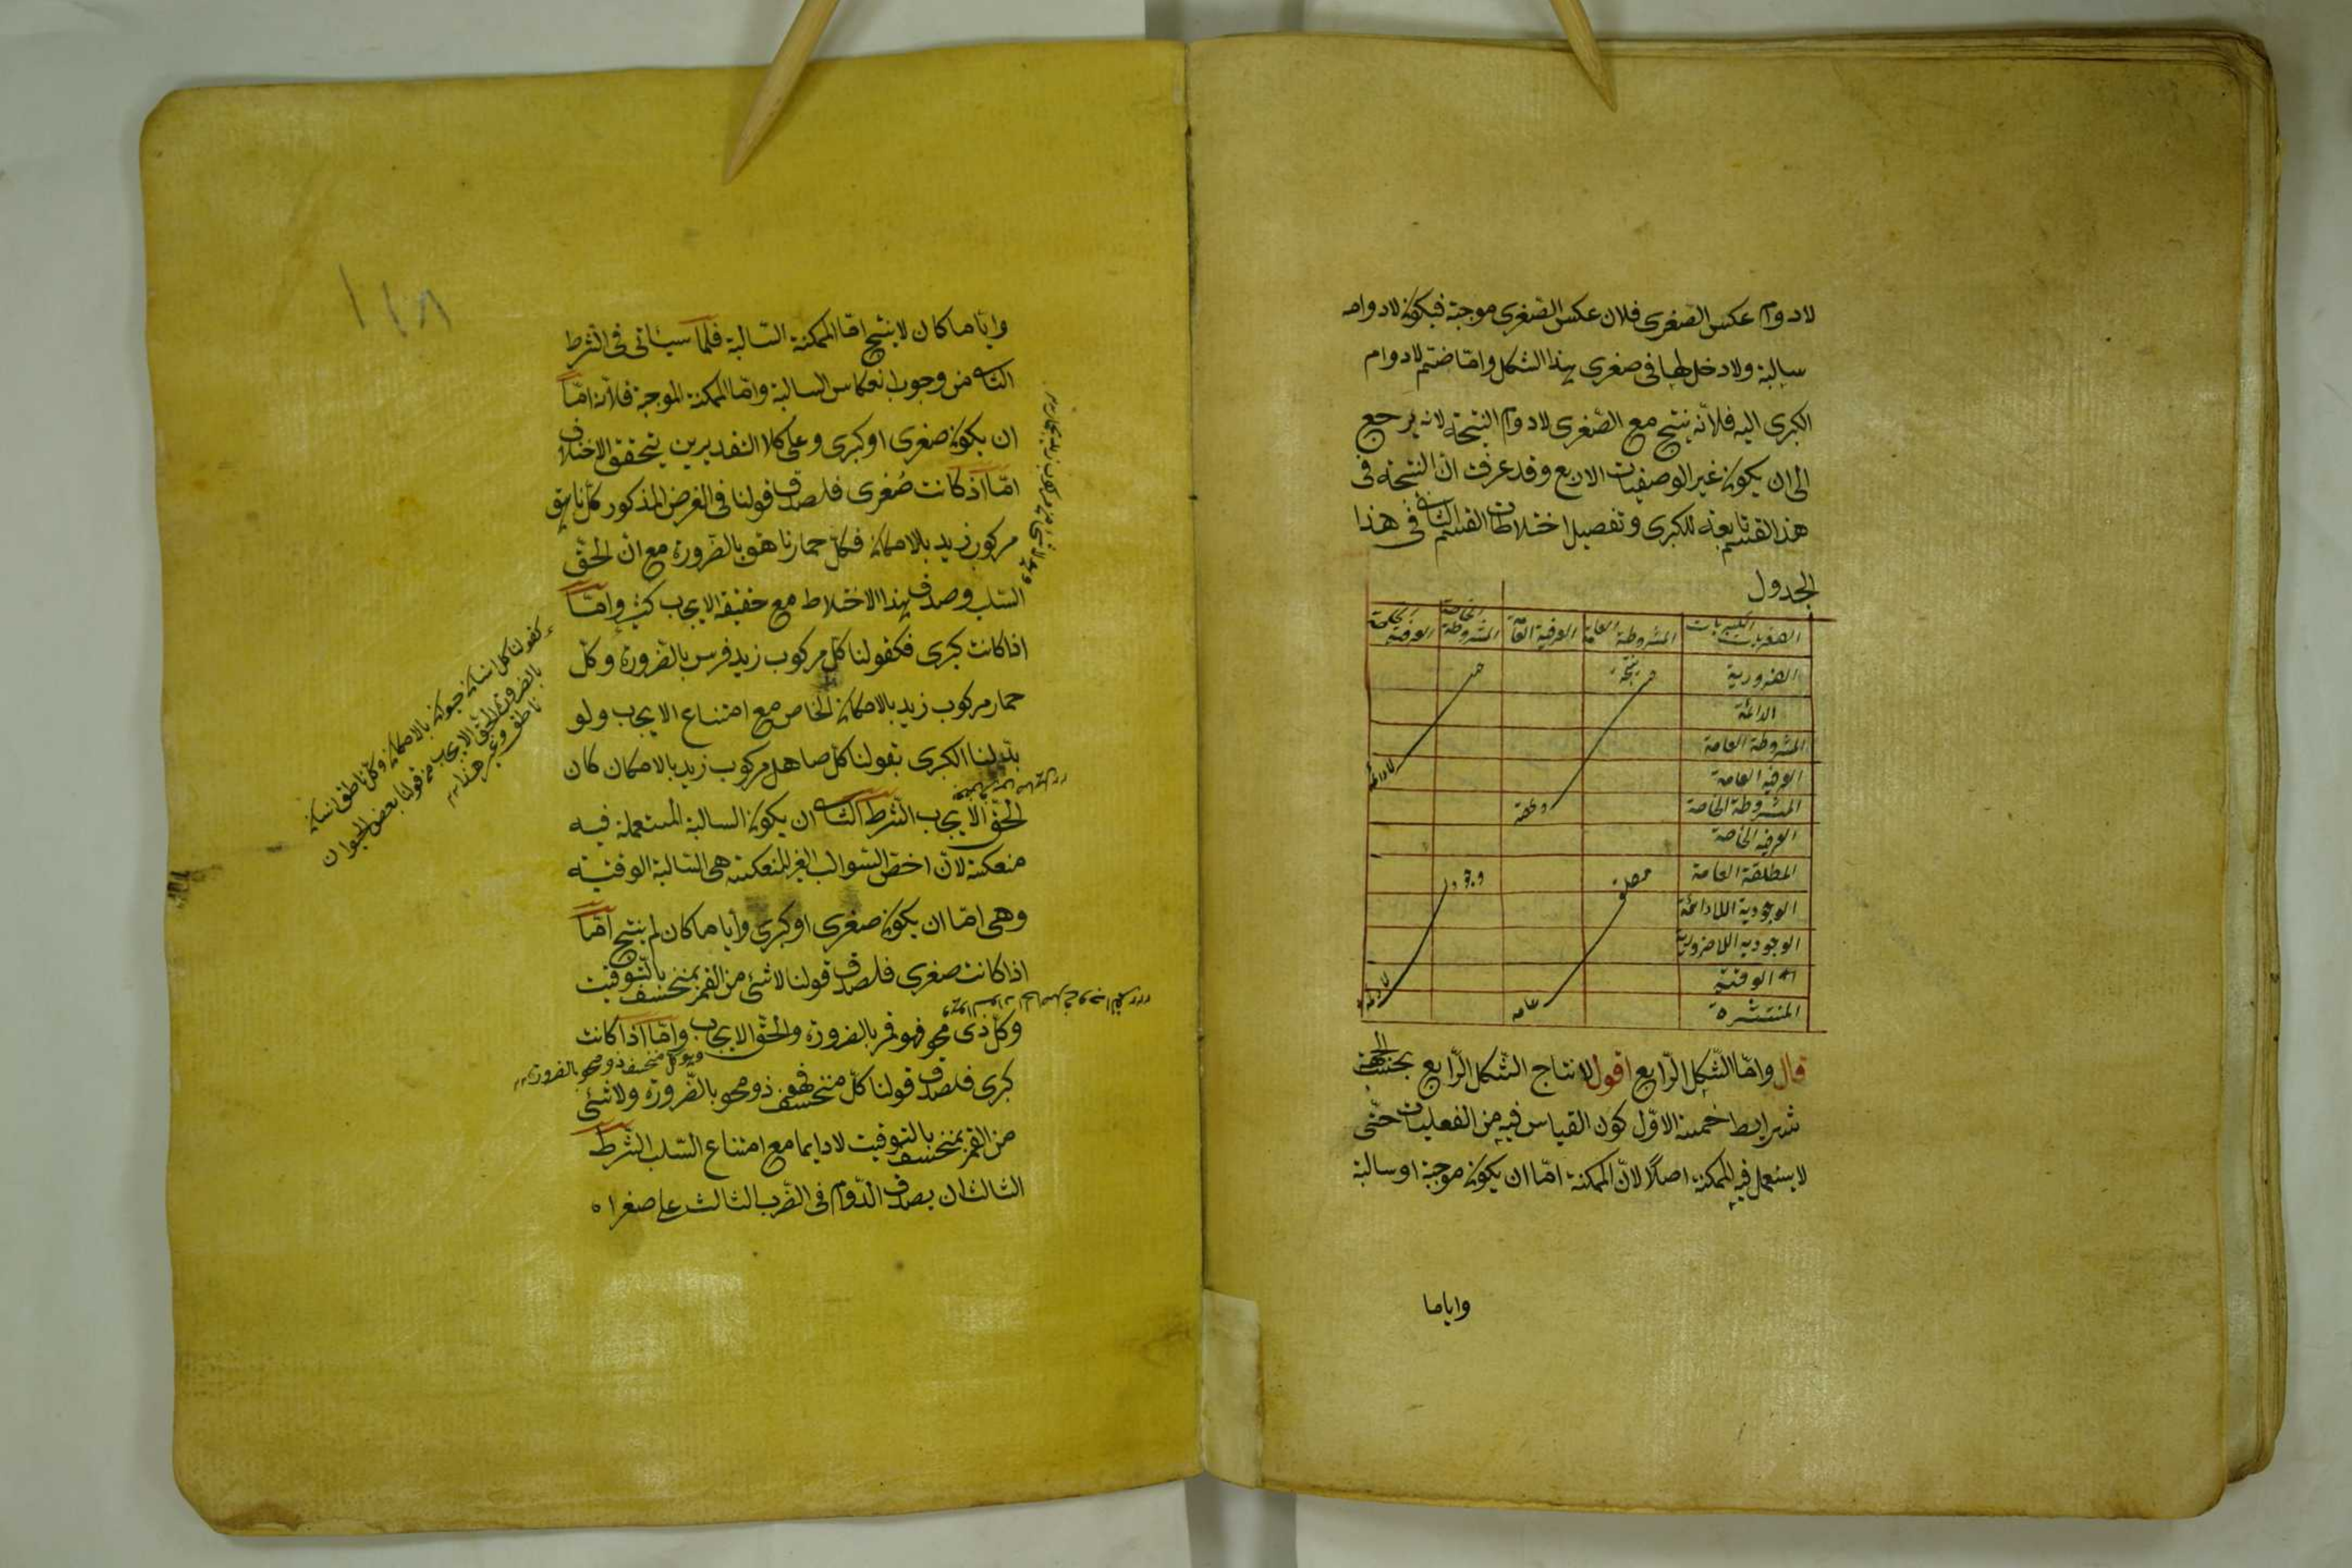 لادوام عكس الصّغرى فلان عكس الصّغرى موجبة فيكون لادوامه
سالبة ولا دخل لها فى صغرى هذا الشكل وامّا ضمّ لادوام
الكبرى اليه فلانّه ينتج مع الصّغرى لادوام النتيجة لانه يرجع
الى ان يكون غير الوصفيات الاربع وقد عرفت انّ النتيجة فى
هذا القسم تابعة للكبرى وتفصيل اختلاطات القسم الثانى فى هذا
الجدول
الصغريات الكبريات المشروطة العامة العرفية العامّة المشروطة الخاصة العرفية الخاصة
الضرورية
الدائمة
المشروطة العامة
العرفيه العامة
المشروطة الخاصة
العرفيه الخاصة
المطلقة العامة
الوجودية اللادائمة
الوجوديه اللاضرورية
الوقتية
المنتشرة
عامه
قال وامّا الشّكل الرّابع اقول لانتاج الشّكل الرّابع بحسب الجهة
شرايط خمسة الاوّل كون القياس فيه من الفعليات حتّى
لا يستعمل فيه الممكنة اصلًا لانّ الممكنة امّا ان يكون موجبة او سالبة
واياما
١١٨
وايّاما كان لا ينتج امّا الممكنة السّالبة فلما سيأتى فى الشرط
الثانى من وجوب انعكاس السالبة وامّا الممكنة الموجبة فلانّه امّا
ان يكون صغرى او كبرى وعلى كلا التقديرين يتحقق الاختلاف
امّا اذ كانت صُغرى فلصدق قولنا فى الفرض المذكور كلّ ناهق
مركوب زيد بالامكان فكلّ حمار ناهق بالضّرورة مع انّ الحقّ
السّلب وصدق هذا الاختلاط مع حقيقة الايجاب كثير وامّا
اذا كانت كبرى فكقولنا كلّ مركوب زيد فرس بالضّرورة وكلّ
حمار مركوب زيد بالامكان الخاص مع امتناع الايجاب ولو
بدّلنا الكبرى بقولنا كلّ صاهل مركوب زيد بالامكان كان
الحقّ الايجاب الشّرط الثانى ان يكون السالبة المستعملة فيه
منعكسة لانّ اخصّ السّوالب الغير المنعكسة هى السّالبة الوقتيّة
وهى امّا ان يكون صغرى او كبرى وأيّا ما كان لم ينتج امّا
اذا كانت صغرى فلصدق قولنا لا شئ من القمر بمنخسف بالتّوقيت
وكلّ ذى محو فهو قمر بالضرورة والحقّ الايجاب وامّا اذا كانت
كبرى فلصدق قولنا كلّ منخسف فهو ذو محو بالضّرورة ولا شئ
من القمر بمنخسف بالتوقيت لا دايما مع امتناع السّلب الشّرط
الثالث ان يصدق الدّوام فى الضّرب الثالث على صغراه
كقولنا كل انسان حيوان بالامكان وكلّ ناطق انسان
بالضرورة والحقّ الايجاب من قولنا بعض الحيوان
ناطق وغير هذا
وهو كل منخسف ذو محو بالضرورة